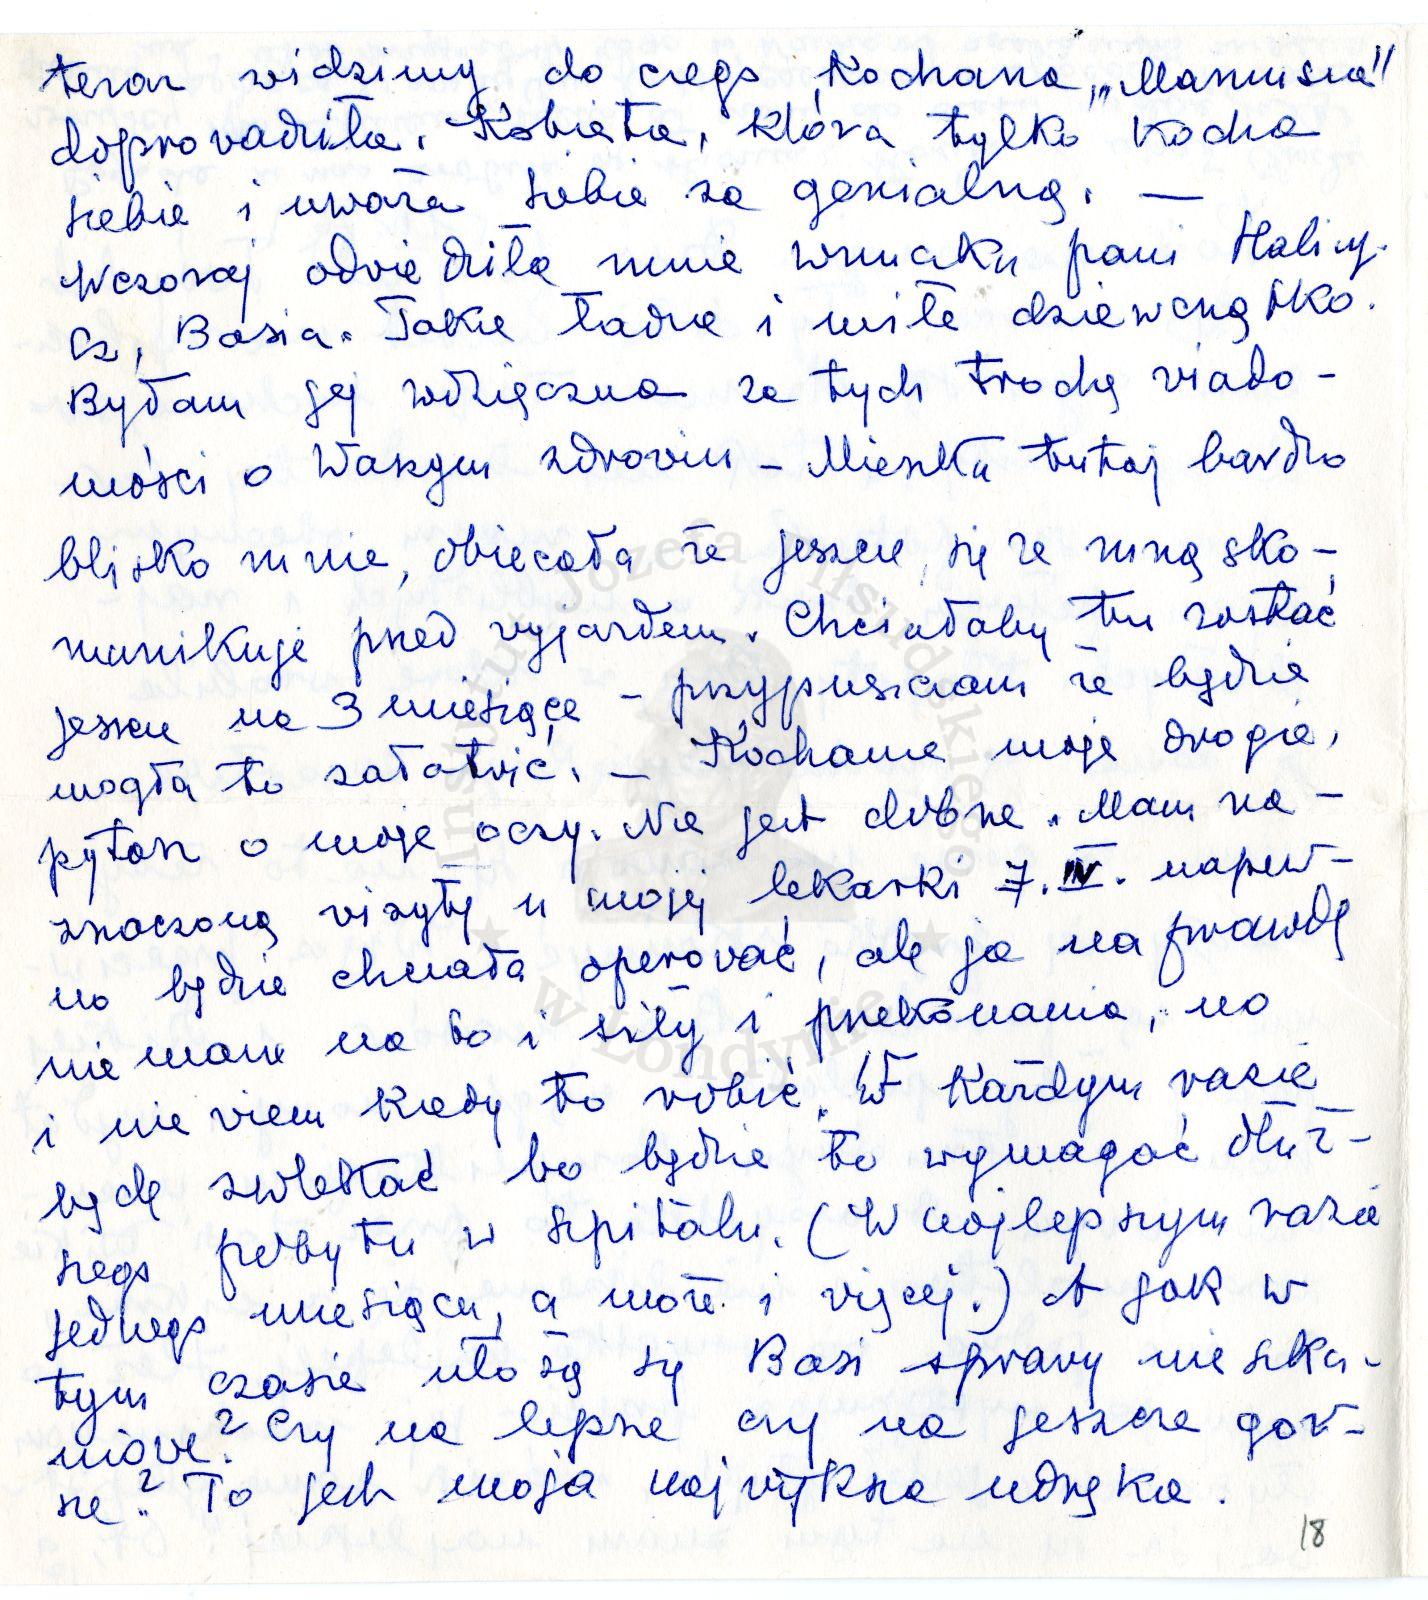 teraz widzimy do czego „Kochana „Mamusia"
doprowadziła. Kobieta, która tylko kocha
siebie i uważa siebie za genialną. —
Wczoraj odwiedziła mnie wnuczka pani Halicy.
cz, Basia. Takie ładne i miłe dziewczątko.
Byłam jej wdzięczna za tych trochę wiado-
mości o Waszym zdrowiu – Mieszka tutaj bardzo
blisko mnie, obiecała że jeszcze się ze mną sko-
munikuje przed wyjazdem. Chciałaby tu zostać
jeszcze na 3 miesiące – przypuszczam że będzie
mogła to załatwić. — Kochane moje drogie,
pytasz o moje oczy. Nie jest dobrze. Mam na-
znaczoną wizytę u mojej lekarki 7. IV. napew-
no będzie chciała operować, ale ja na prawdę
nie mam na to i siły i przekonania, no
i nie wiem kiedy to robić. W każdym razie
będę zwlekać bo będzie to wymagać dłuż-
szego pobytu w szpitalu. (W najlepszym razie
jednego miesiąca, a może i więcej.) A jak w
tym czasie ułożą się Basi sprawy mieszka-
niowe? Czy na lepsze czy na jeszcze gor-
sze? To jest moja największa udręka.
18
Instytut Józefa Piłsudskiego
w Londynie